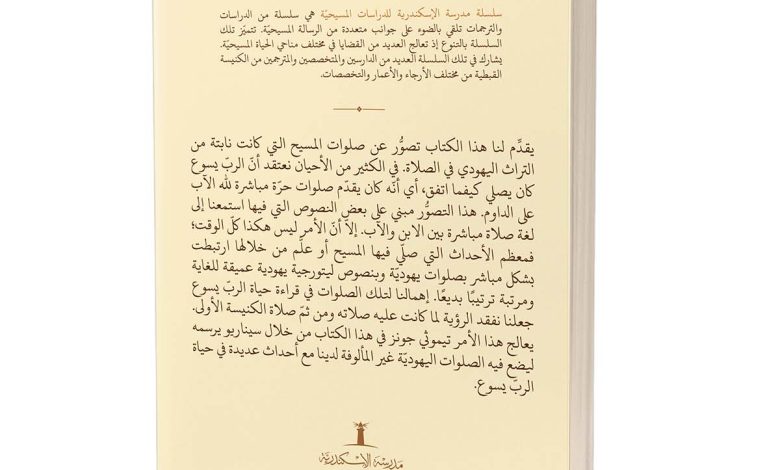 سلسلة مدرسة الإسكندرية للدراسات المسيحيّة هي سلسلة من الدراسات
والترجمات تلقي بالضوء على جوانب متعددة من الرسالة المسيحيّة. تتميّز تلك
السلسلة بالتنوع إذ تعالج العديد من القضايا في مختلف مناحي الحياة المسيحيّة.
يشارك في تلك السلسلة العديد من الدارسين والمتخصصين والمترجمين من الكنيسة
القبطية من مختلف الأرجاء والأعمار والتخصصات.
يقدِّم لنا هذا الكتاب تصوُّر عن صلوات المسيح التي كانت نابتة من
التراث اليهودي في الصلاة. في الكثير من الأحيان نعتقد أنّ الربّ يسوع
كان يصلي كيفما اتفق، أي أنّه كان يقدّم صلوات حرّة مباشرة لله الآب
على الدوام. هذا التصوُّر مبني على بعض النصوص التي فيها استمعنا إلى
لغة صلاة مباشرة بين الابن والآب. إلاّ أنّ الأمر ليس هكذا كلّ الوقت؛
فمعظم الأحداث التي صلّي فيها المسيح أو علّم من خلالها ارتبطت
بشكل مباشر بصلوات يهوديّة وبنصوص ليتورجية يهودية عميقة للغاية
ومرتبة ترتيبًا بديعًا. إهمالنا لتلك الصلوات في قراءة حياة الربّ يسوع
جعلنا نفقد الرؤية لما كانت عليه صلاته ومن ثمّ صلاة الكنيسة الأولى.
يعالج هذا الأمر تيموثي جونز في هذا الكتاب من خلال سيناريو يرسمه
ليضع فيه الصلوات اليهوديّة غير المألوفة لدينا مع أحداث عديدة في حياة
الربّ يسوع.
مدرسة الإسكندرية